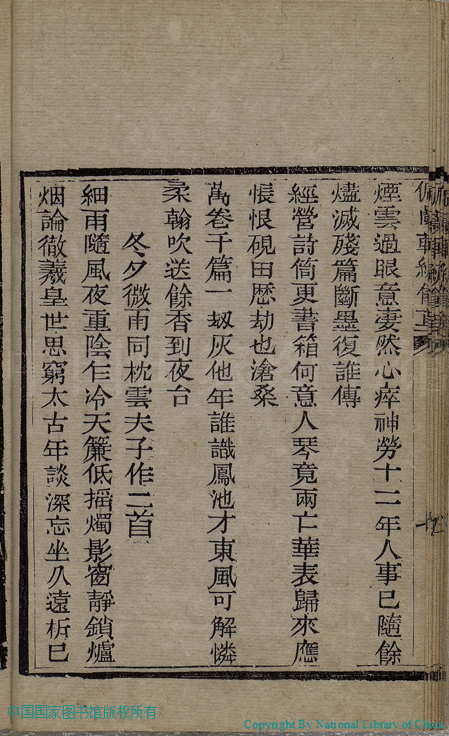 煙雲過眼意淒然心瘁神勞十二年人事已隨餘
燼滅殘篇斷墨復誰傳
經營詩筒更書箱何意人琴竟兩亡華表歸來應
悵恨硯田歷劫也滄桑
萬卷千篇一刼灰他年誰識鳳池才東風可解憐
柔翰吹送餘香到夜台
冬夕微雨同枕雲夫子作二首
細雨隨風夜重陰乍冷天簾低搖燭影窗靜鎖爐
烟論徹羲皇世思窮太古年談深忘坐久遠柝已
中国国家图书馆版权所有
Copyright By National Library of China